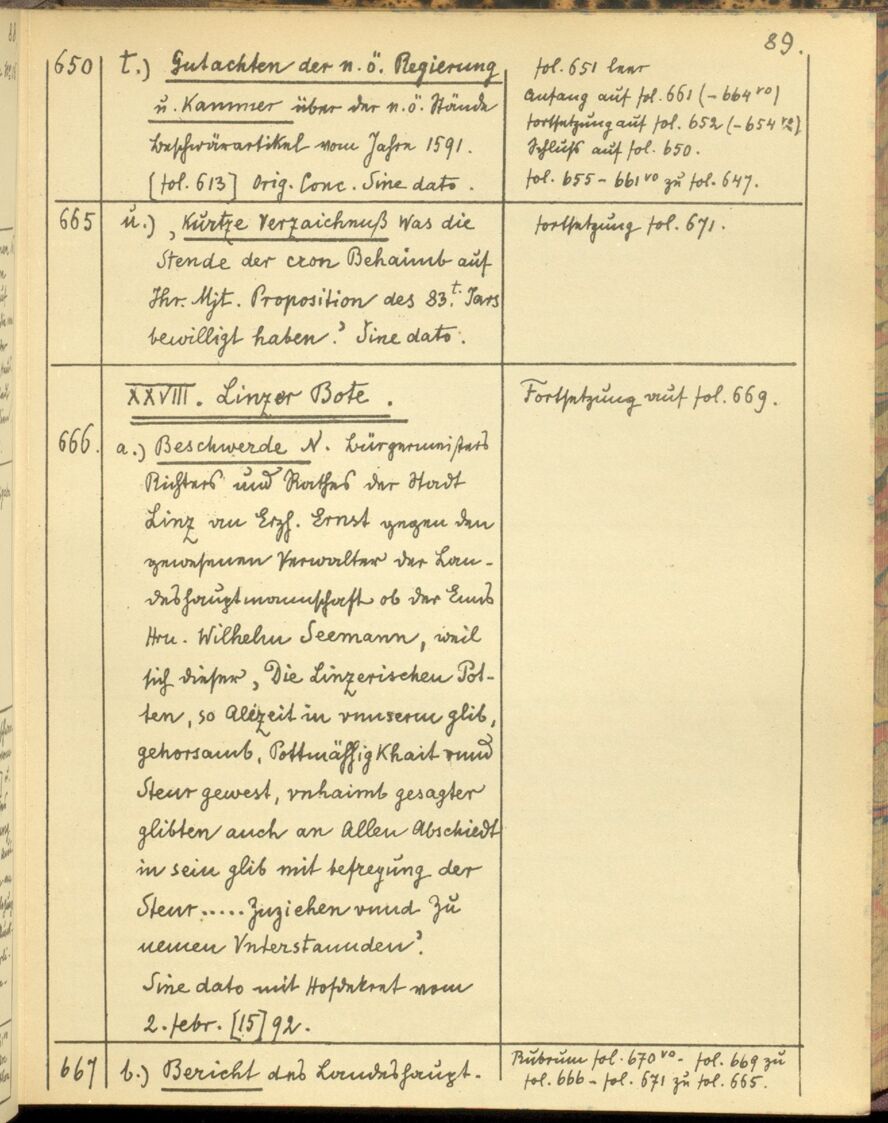 89.
650 t.) Gutachten der n. ö. Regierung
u. Kammer über der n. ö. Stände
Beschwärartikel vom Jahre 1591.
[fol. 613] Orig. Conc. Sine dato.
fol. 651 leer
Anfang auf fol. 661 (- 664 vo)
Fortsetzung auf fol. 652 (- 654 vo)
Schluß auf fol. 650.
fol. 655 - 661 vo zu fol. 647.
665 u.) „Kurtze Verzaichnuß was die
Stende der cron Behaimb auf
Ihr. Mjt. Proposition des 83.t. Jars
bewilligt haben.“ Sine dato.
Fortsetzung fol. 671.
XXVIII. Linzer Bote.
Fortsetzung auf fol. 669.
666. a.) Beschwerde N. Bürgermeisters
Richters und Rathes der Stadt
Linz an Erzh. Ernst gegen den
gewesenen Verwalter der Lan-
deshauptmannschaft ob der Enns
Hrn. Wilhelm Seemann, weil
sich dieser „Die Linzerischen Pot-
ten, so Allzeit in vnnserm glib,
gehorsamb, Pottmässigkhait vnnd
Steur gewest, vnhaimb gesagter
glibten auch an Allen Abschiedt
in sein glib mit befreyung der
Steur ..... Zuziehen vnnd Zu
nemen Vnterstannden“.
Sine dato mit Hofdekret vom
2. febr. [15]92.
667 b.) Bericht des Landeshaupt-
Rubrum fol. 670 vo - fol. 669 zu
fol. 666 - fol. 671 zu fol. 665.